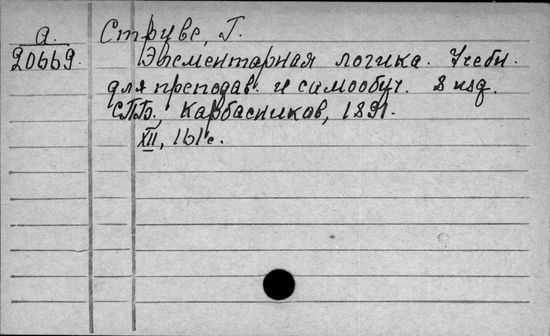 а.
20669.
Струве, Г.
Элементарная логика. Учебн.
для преподав. и самообуч. 8 изд.
СПБ., Карбасников, 1891.
XII, 161 с.